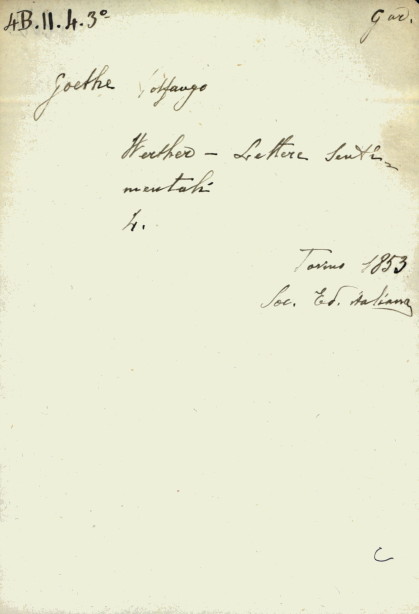 4B.II.4.3º
Gad.
Goethe Volfango
Werther - Lettere senti=
mentali
4.
Torino 1853
Soc. Ed. italiana
C